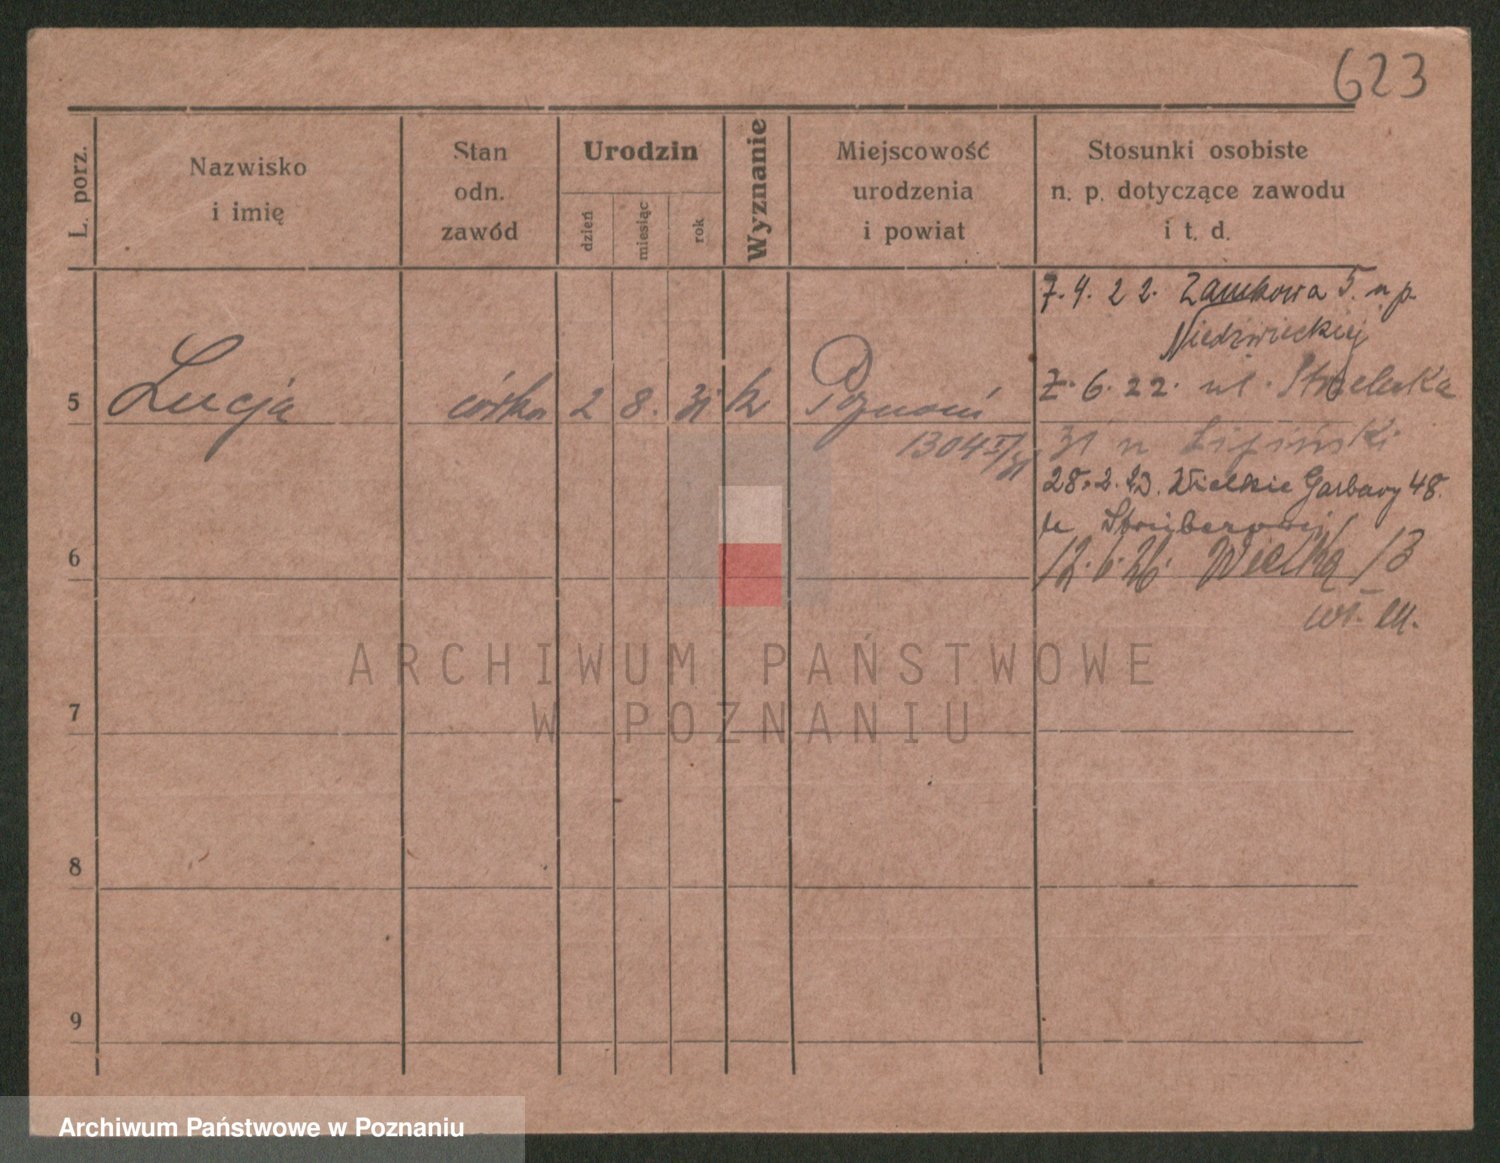 623
L. porz.
Nazwisko
i imię
Stan
odn.
zawód
Urodzin
dzień
miesiąc
rok
Wyznanie
Miejscowość
urodzenia
i powiat
Stosunki osobiste
n. p. dotyczące zawodu
i t. d.
7. 4. 22. Zamkowa 5. n p.
Niedźwieckiej
5 Lucja córka 2 8. 31 k Poznań
7. 6. 22. ul. Strzelecka
1304
31 n Lipiński
28. 2. 23. Wielkie Garbary 48.
6
12. 6. 26. Wielka 13
7
8
9
ARCHIWUM PAŃSTWOWE
W POZNANIU
Archiwum Państwowe w Poznaniu